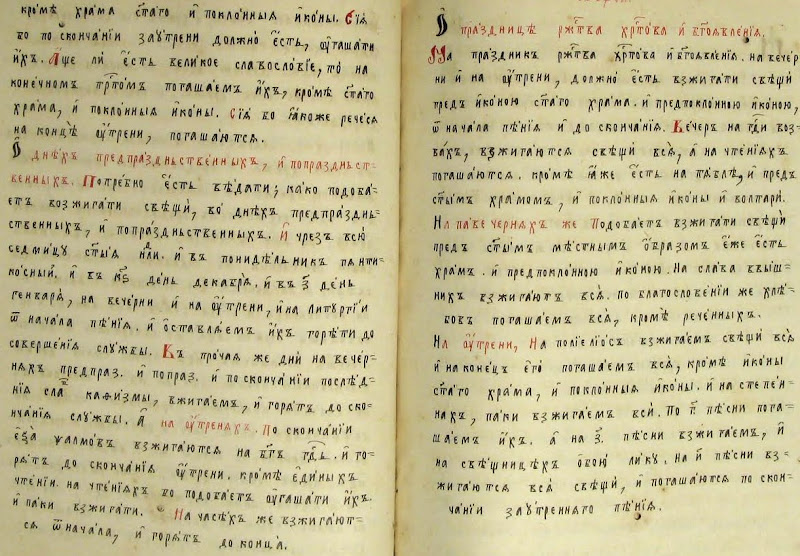 кромѣ храма ст҃аго и҆ поклѡ́нныѧ и҆ко́ны. Сїѧ̀
бо по сконча́нїи заꙋ́трени должно̀ є҆́сть, ᲂу҆гаша́ти
и҆̀хъ. А҆́ще ли є҆́сть вели́кое славосло́вїе, то̀ на
коне́чномъ трист҃о́мъ погаша́емъ и҆̀хъ, кро́мѣ ст҃а́го
хра́ма, и҆ покло́нныѧ и҆ко́ны. Сїѧ̀ бо ꙗ҆́коже рече́сѧ
на концѣ̀ ᲂу҆́трени, погаша́ютсѧ.
Ѡ҆ днѣ́хъ предпра́здньственныхъ, и҆ попра́здньст-
венныхъ. Потре́бно є҆́сть вѣ́дати; ка́ко подоба́-
етъ возжига́ти свѣ́щи, во днѣ́хъ предпра́здньс-
твенныхъ, и҆ попра́здньственныхъ. И҆ чрезъ всю̀
седми́цꙋ ст҃ы́ѧ нл҃и. и҆ въ понидѣ́льникъ пѧнти-
ко́сный. и҆ въ де́нь декабрѧ̀. и҆ въ з҃ де́нь
генварѧ̀, на вече́рни и҆ на ᲂу҆́трени, и҆ на литꙋргі́и
ѿ нача́ла пѣ́нїѧ. и҆ ѡ҆ставлѧ́емъ и҆̀хъ горѣ́ти до
соверше́нїѧ слꙋ́жбы. Въ про́чаѧ же дни̑ на вече́р-
нѧхъ предпраз. и҆ попраз. и҆ по сконча́нїи послѣ́д-
нїѧ сла̑ каѳи́змы, вжига́емъ, и҆ горѧ́тъ до ско-
нча́нїѧ слꙋ́жбы. А҆ на ᲂу҆́тренѧхъ. По сконча́нїи
ѱалмо́въ взжига́ютсѧ на бг҃ъ гд҃ь. и҆ го-
рѧ́тъ до сконча́нїѧ ᲂу҆́трени. кро́мѣ є҆ди́ныхъ
чте́нїи. на чте́нїѧхъ бо подоба́етъ ᲂу҆гаша́ти и҆̀хъ.
и҆ па́ки взжига́ти. На часѣ́хъ же взжига́ют-
сѧ ѿ нача́ла, и҆ горѧ́тъ до конца̀.
Ѡ҆ пра́здницѣ рж҃тва̀ хр҃то́ва и҆ бг҃оѧвле́нїѧ.
На пра́здникъ рж҃тва̀ хр҃то́ва и҆ бг҃оѧвле́нїѧ. на вече́р-
ни и҆ на ᲂу҆́трени, должно̀ є҆́сть взжига́ти свѣ́щы
предъ и҆ко́ною ст҃а́го хра́ма. и҆ предпокло́нною и҆ко́ною,
ѿ нача́ла пѣ́нїѧ и҆ до сконча́нїѧ. Ве́черъ на гд҃и воз-
ва́хъ, взжига́ютсѧ свѣ́щы всѧ̑, а҆ на чте́нїѧхъ
погаша́ютсѧ. кро́мѣ ꙗ҆́же є҆́сть на тѧ́блѣ, и҆ предъ
ст҃ы́мъ хра́момъ, и҆ покло́нныѧ и҆ко́ны и҆ волтарѝ.
На павече́рнѧхъ же подоба́етъ взжига́ти свѣ́щы
предъ ст҃ы́мъ мѣ́стнымъ ѻ҆́бразомъ є҆́же є҆́сть
хра́мъ. и҆ предпокло́нною и҆ко́ною. На сла́ва ввы́ш-
нихъ взжига́ютъ всѧ̑. по благослове́нїи же хлѣ́-
бовъ погаша́емъ всѧ̑, кро́мѣ рече́нныхъ.
На ᲂу҆́трени, На полїеле́ѡсъ взжига́емъ свѣ́щы всѧ̑
и҆ на коне́цъ є҆гѡ̀ погаша́емъ всѧ̑, кро́мѣ и҆ко́ны
ст҃а́го хра́ма, и҆ покло́нныѧ и҆ко́ны. и҆ на степе́н-
нахъ, па́ки взжига́емъ всѝ. По г҃ пѣ́сни пога-
ша́емъ и҆̀хъ. а҆ на з҃. пѣ́сни взжига́емъ, и҆
на свѣ́щницѣхъ ѻ҆бою̀ ли́кꙋ. на и҃ пѣ́сни вз-
жига́ютсѧ всѧ̑ свѣ́щы, и҆ погаша́ютсѧ по скон-
ча́нїи заꙋ́тренѧго пѣ́нїѧ.